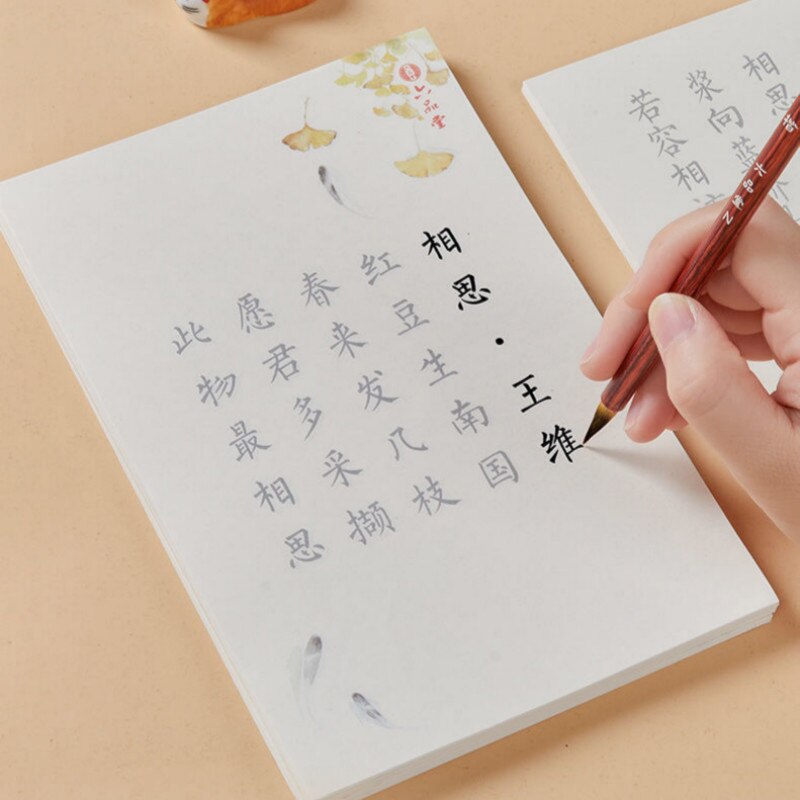 相思·王维
红豆生南国
春来发几枝
愿君多采撷
此物最相思
六品堂
相思
桨向蓝
若容相
六品堂